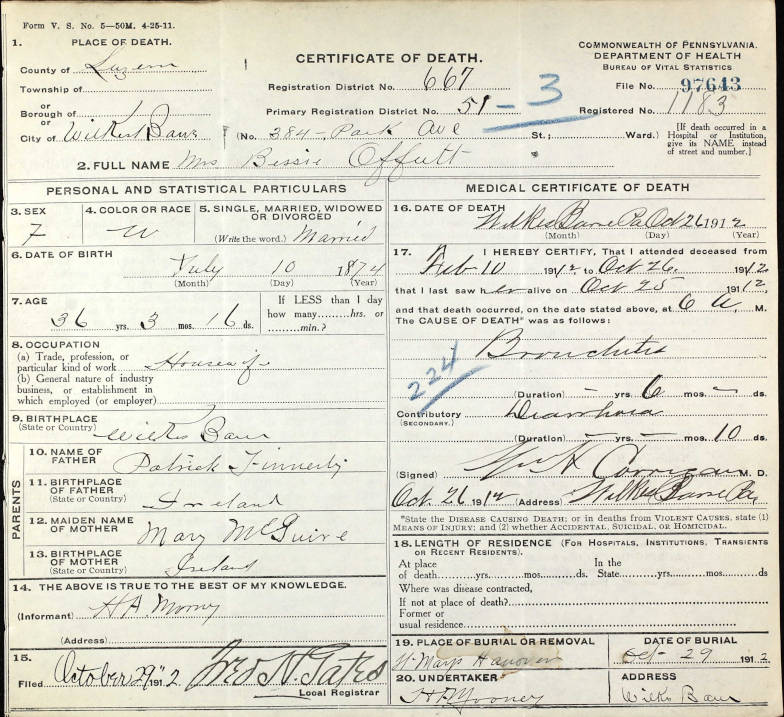 Form V. S. No. 5—50M. 4-25-11.
1. PLACE OF DEATH.
County of Luzern
Township of
or
Borough of
or
City of Wilkes Barre
CERTIFICATE OF DEATH.
Registration District No. 667
Primary Registration District No. 51 - 3
(No. 284 - Park Ave St.; Ward.)
COMMONWEALTH OF PENNSYLVANIA.
DEPARTMENT OF HEALTH
BUREAU OF VITAL STATISTICS
File No. 97643
Registered No. 1183
[If death occurred in a Hospital or Institution, give its NAME instead of street and number.]
2. FULL NAME Mrs Bessie Offutt
PERSONAL AND STATISTICAL PARTICULARS
3. SEX
F
4. COLOR OR RACE
W
5. SINGLE, MARRIED, WIDOWED OR DIVORCED
(Write the word.) Married
6. DATE OF BIRTH
July 10 1874
(Month) (Day) (Year)
7. AGE
36 yrs. 3 mos. 16 ds.
If LESS than 1 day how many hrs. or min.?
8. OCCUPATION
(a) Trade, profession, or particular kind of work
(b) General nature of industry business, or establishment in which employed (or employer)
9. BIRTHPLACE
(State or Country) Wilkes Barre
PARENTS
10. NAME OF FATHER Patrick Finnerty
11. BIRTHPLACE OF FATHER
(State or Country) Ireland
12. MAIDEN NAME OF MOTHER Mary McGuire
13. BIRTHPLACE OF MOTHER
(State or Country) Ireland
14. THE ABOVE IS TRUE TO THE BEST OF MY KNOWLEDGE.
(Informant) H A
(Address)
15.
Filed October 29" 1912 Fred N. Gates
Local Registrar
MEDICAL CERTIFICATE OF DEATH
16. DATE OF DEATH
Wilkes Barre Pa Oct 26 1912
(Month) (Day) (Year)
17. I HEREBY CERTIFY, That I attended deceased from
Feb 10 1912 to Oct 26. 1912
that I last saw her alive on Oct 25 1912,
and that death occurred, on the date stated above, at 6 A, M.
The CAUSE OF DEATH* was as follows:
Bronchitis
224
(Duration) - yrs. 6 mos. - ds.
Contributory Diarrhoea
(SECONDARY.)
(Duration) - yrs. - mos. 10 ds.
(Signed) Corrigan M. D.
Oct. 26 1912 (Address) Wilkes Barre Pa
*State the DISEASE CAUSING DEATH; or in deaths from VIOLENT CAUSES, state (1) MEANS OF INJURY; and (2) whether ACCIDENTAL, SUICIDAL, OR HOMICIDAL.
18. LENGTH OF RESIDENCE (FOR HOSPITALS, INSTITUTIONS, TRANSIENTS OR RECENT RESIDENTS).
At place of death yrs. mos. ds. In the State yrs. mos. ds
Where was disease contracted,
If not at place of death?
Former or
usual residence
19. PLACE OF BURIAL OR REMOVAL
St Marys Hanover
DATE OF BURIAL
Oct - 29 1912
20. UNDERTAKER
H A Mooney
ADDRESS
Wilks Barre